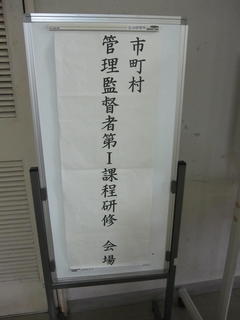 市町村
管理監督者第Ⅰ課程研修 会場